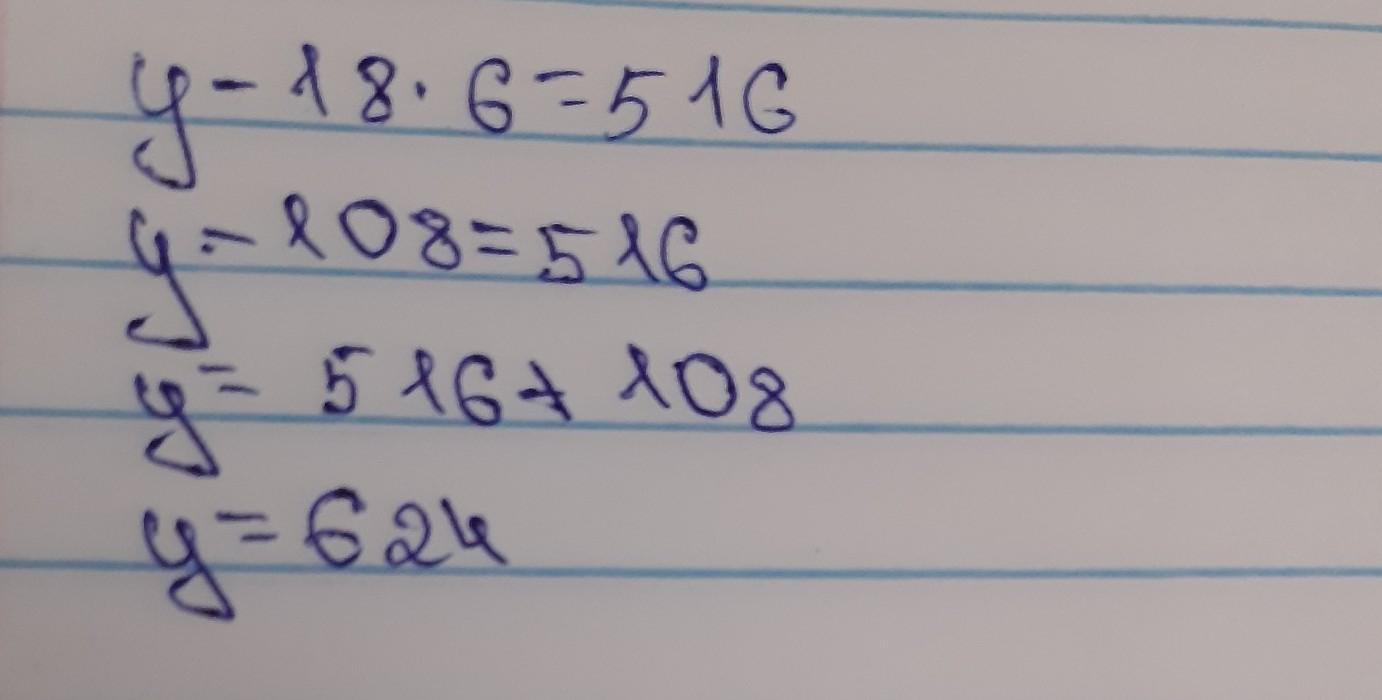 y - 18 · 6 = 516
y - 108 = 516
y = 516 + 108
y = 624